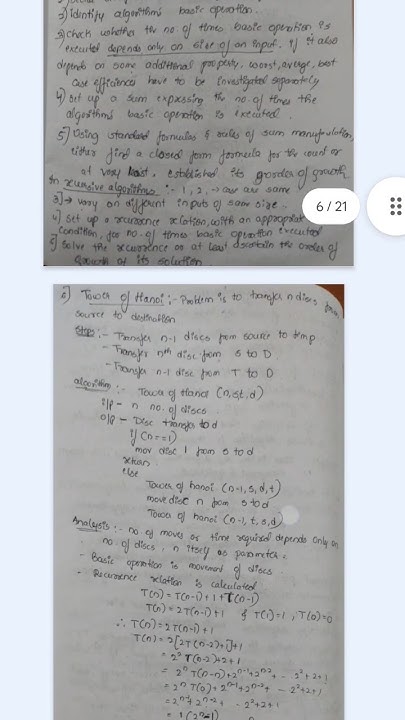 2) identify algorithm's basic operation.
3) check whether the no. of times basic operation is
executed depends only on size of an input. if it also
depends on some additional property, worst, average, best
case efficiencies have to be investigated separately
4) Set up a sum expressing the no. of times the
algorithm's basic operation is executed.
5) Using standard formulas & rules of sum manipulation,
either find a closed form formula for the count or
at very least, established its order of growth
In recursive algorithms :- 1, 2 → are same
3) → vary on different inputs of same size.
4) Set up a recurrence relation, with an appropriate
condition, for no. of times basic operation executed
5) Solve the recurrence or at least ascertain the order of
growth of its solution
6 / 21
Tower of Hanoi :- Problem is to transfer n discs from
source to destination
Steps :- Transfer n-1 discs from source to temp
- Transfer nth disc from S to D
- Transfer n-1 disc from T to D
algorithm :- Tower of Hanoi (n, s, t, d)
i/p - n no. of discs
o/p - Disc transfer to d
if (n == 1)
mov disc 1 from s to d
return
else
Tower of hanoi (n-1, s, d, t)
move disc n from s to d
Tower of hanoi (n-1, t, s, d)
Analysis :- no. of moves or time required depends only on
no. of discs, n itself as parameter
- Basic operation is movement of discs
- Recurrence relation is calculated
T(n) = T(n-1) + 1 + T(n-1)
T(n) = 2T(n-1) + 1 & T(1) = 1, T(0) = 0
∴ T(n) = 2T(n-1) + 1
T(n) = 2[2T(n-2) + 1] + 1
= 2² T(n-2) + 2 + 1
= 2ⁿ T(n-n) + 2ⁿ⁻¹ + 2ⁿ⁻² + - 2² + 2 + 1
= 2ⁿ T(0) + 2ⁿ⁻¹ + 2ⁿ⁻² + - 2² + 2 + 1
= 2ⁿ⁻¹ + 2ⁿ⁻² + - 2² + 2 + 1
= 1 (2ⁿ - 1)